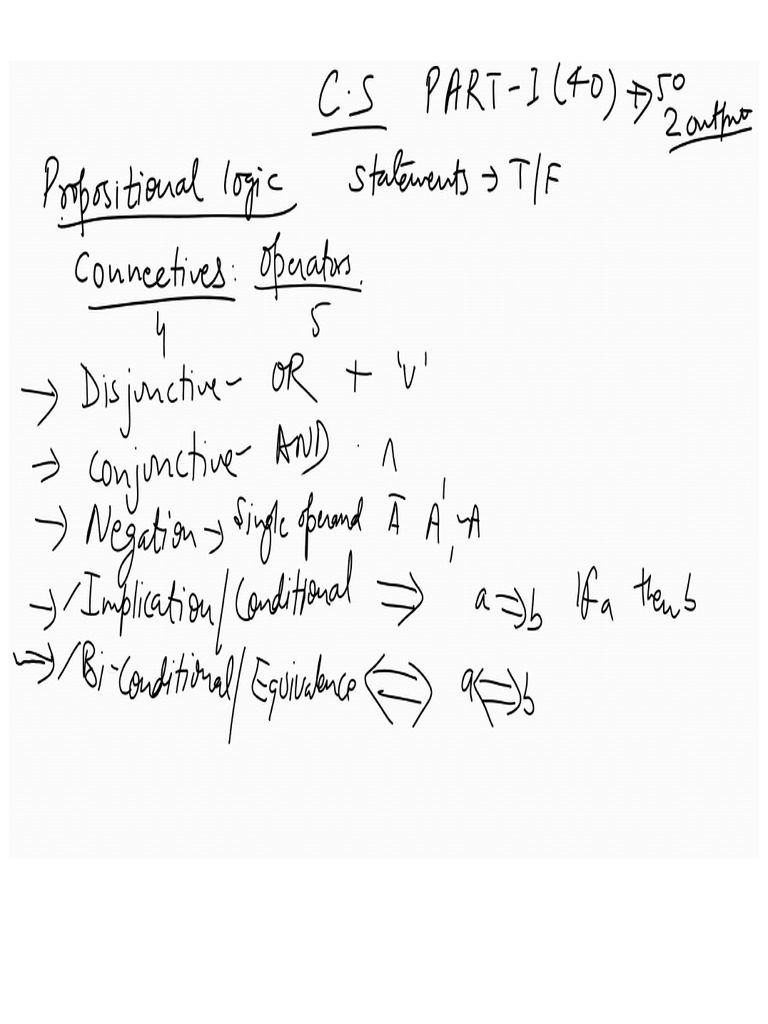 C.S PART-I (40) → 50
2 output
Propositional logic statements → T/F
Connectives: Operators.
4 5
→ Disjunctive - OR + 'V'
→ Conjunctive - AND . ∧
→ Negation → Single operand Ā A', ~A
→ /Implication/Conditional ⇒ a⇒b If a then b
⇒ /Bi-Conditional/Equivalence ⇔ a⇔b